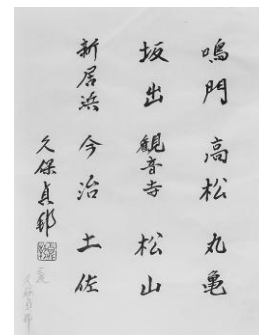 鳴門 高松 丸亀
坂出 観音寺 松山
新居浜 今治 土佐
久保貞邨